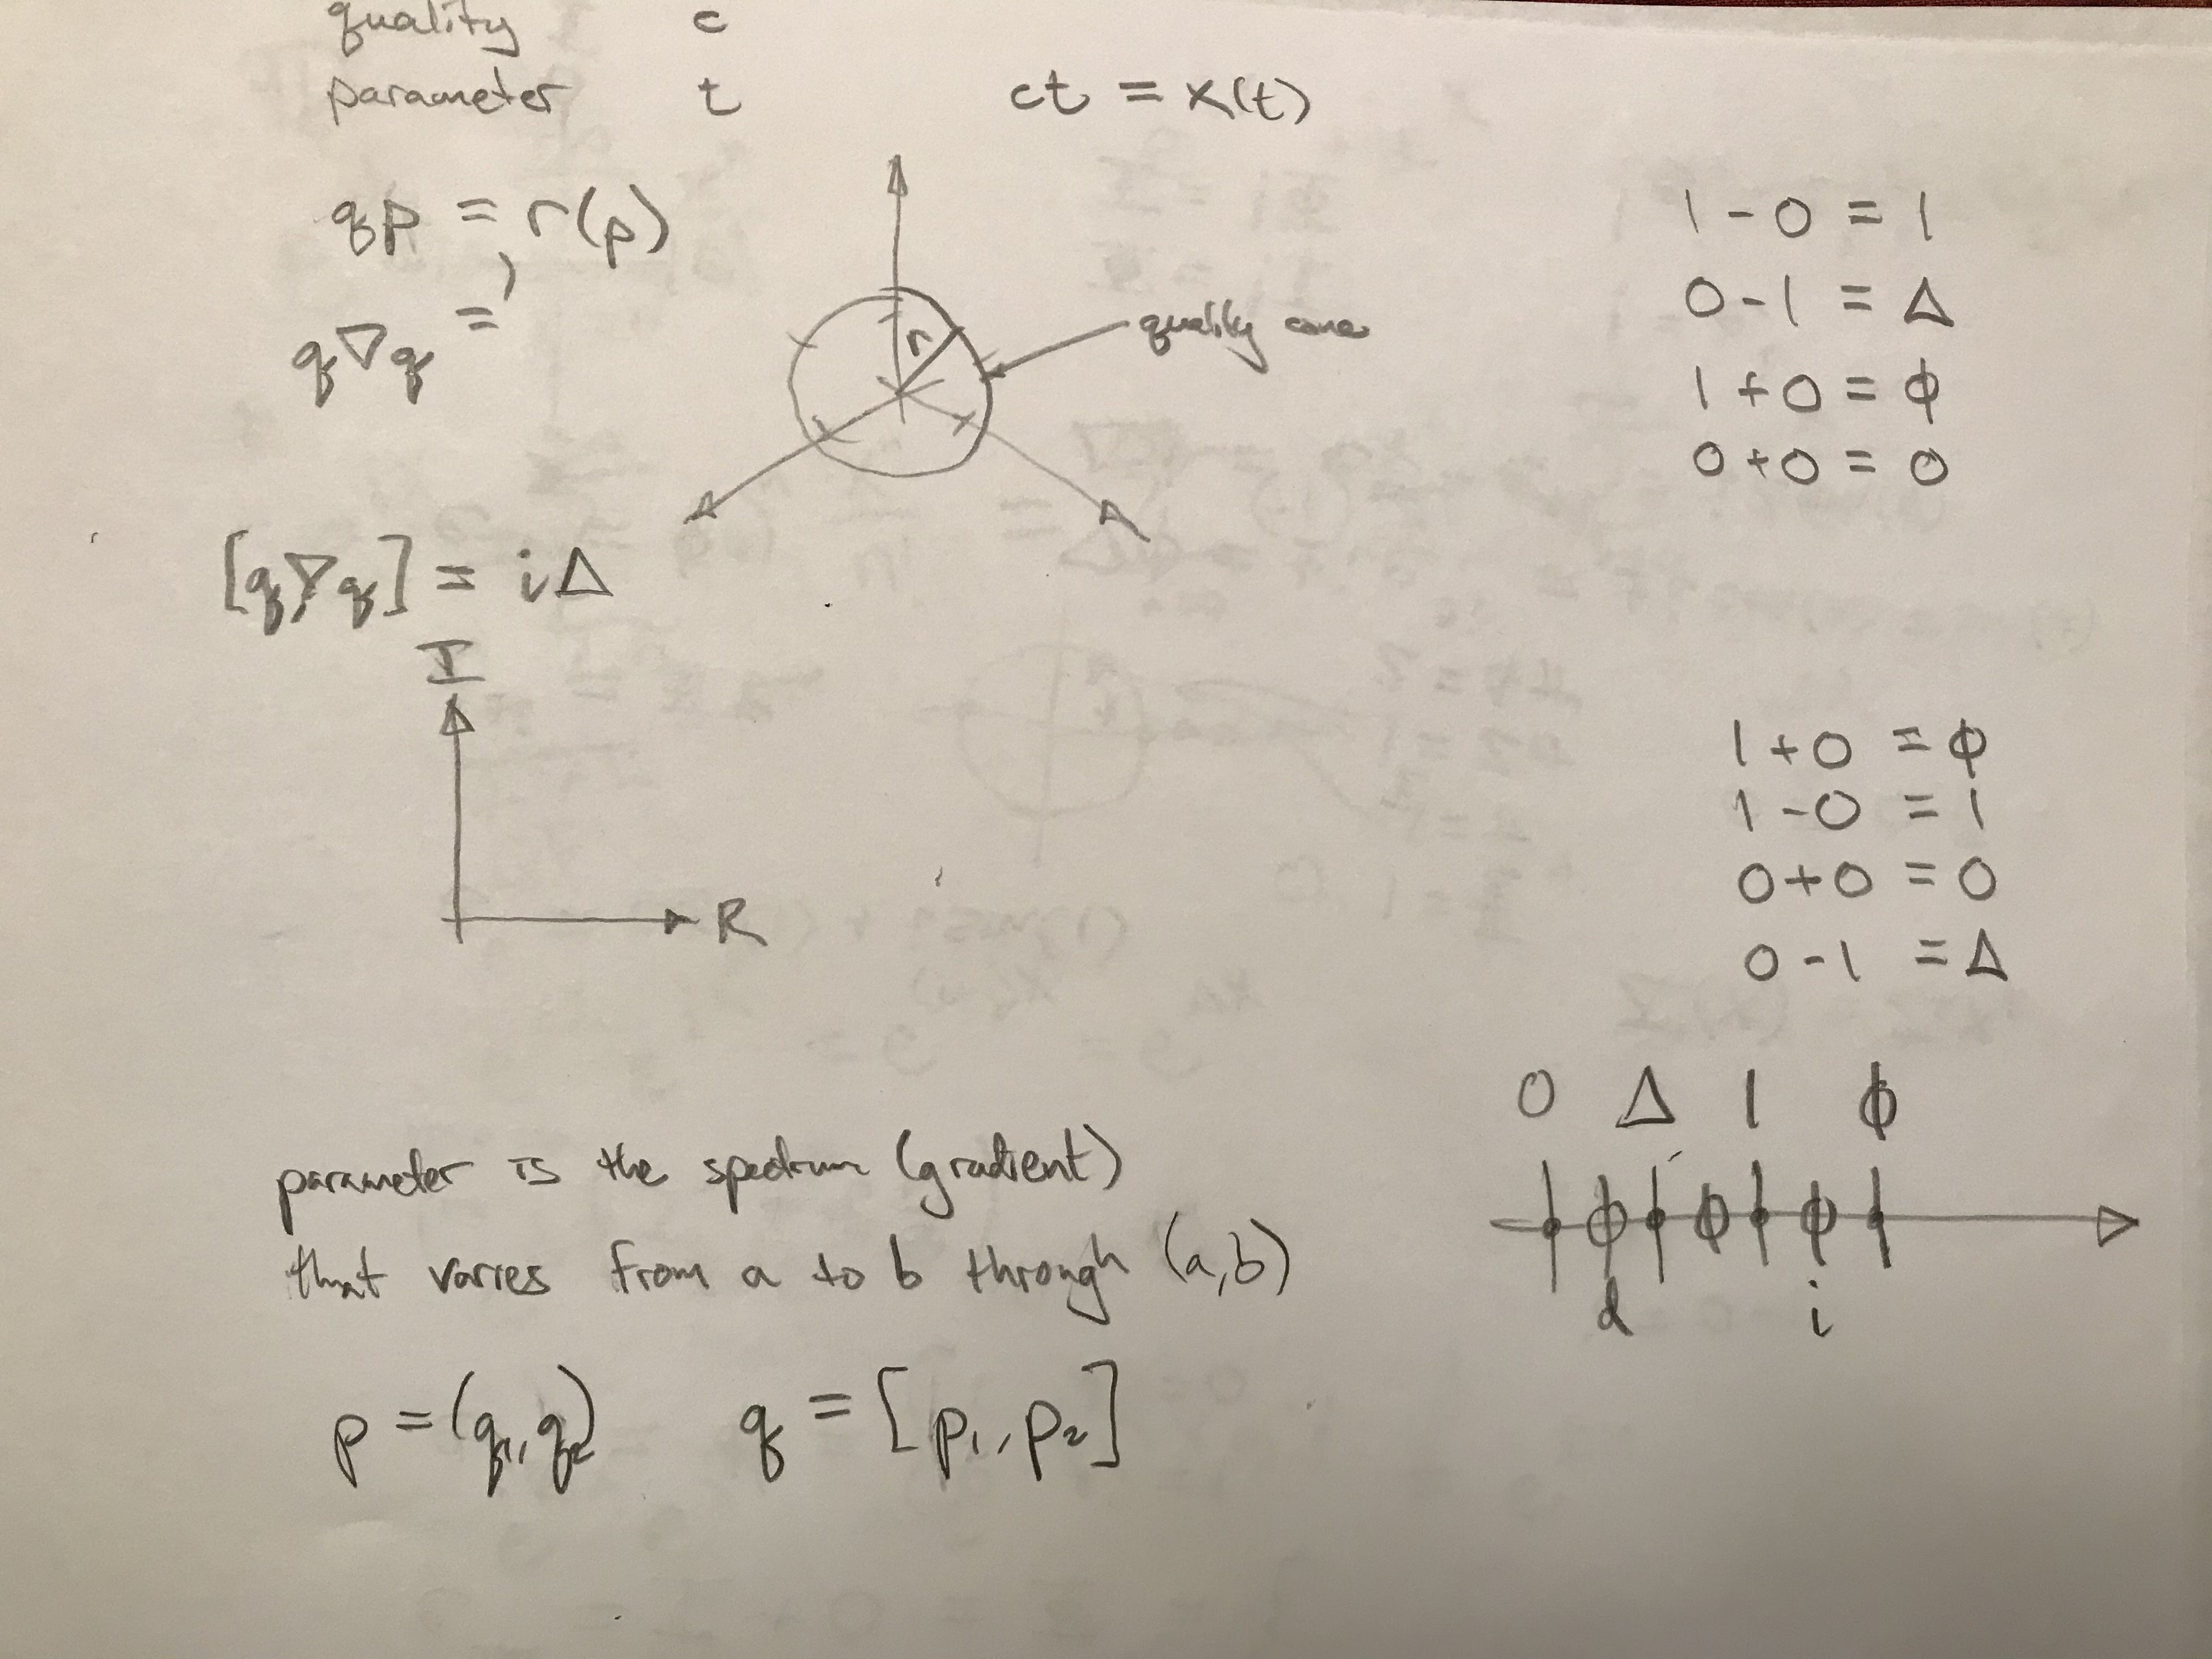 quality c
parameter t ct = x(t)
qp = r(p)
q∇q =
r
quality cone
[q,∇q] = iΔ
I
R
1 - 0 = 1
0 - 1 = Δ
1 + 0 = ϕ
0 + 0 = 0
1 + 0 = ϕ
1 - 0 = 1
0 + 0 = 0
0 - 1 = Δ
0 Δ 1 ϕ
ϕ ϕ ϕ
d i
parameter is the spectrum (gradient)
that varies from a to b through (a,b)
p = (q1, q2) q = [p1, p2]